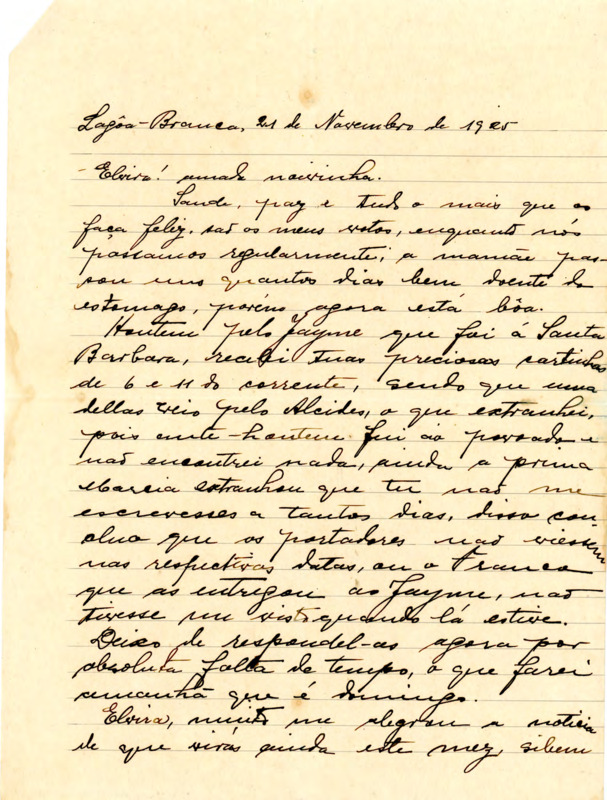 Lagôa-Branca, 21 de Novembro de 1925
Elvira! amada noivinha.
Saude, paz e tudo o mais que os
faça feliz, saõ os meus votos, enquanto nós
passamos regularmente; a mamãe pas-
sou uns quantos dias bem doente do
estomago, porém agora está bôa.
Hontem pelo Jayme que foi á Santa
Barbara, recebi tuas preciosas cartinhas
de 6 e 11 do corrente, sendo que uma
dellas veio pelo Alcides, o que extranhei,
pois ante-hontem fui ao povoado e
naõ encontrei nada, ainda a prima
Marcia extranhou que tu naõ me
escrevesses a tantos dias, disso con-
cluo que os portadores naõ viessem
nas respectivas datas, ou o Franco
que as entregou ao Jayme, naõ
tivesse me visto quando lá estive.
Deixo de respondel-as agora por
absoluta falta de tempo, o que farei
amanhã que é domingo.
Elvira, muito me alegrou a noticia
de que virás ainda este mez, sibem